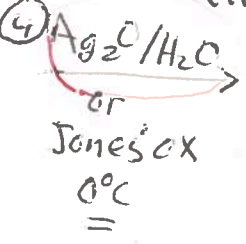 ④ Ag2O/H2O
or
Jones ox
0°C